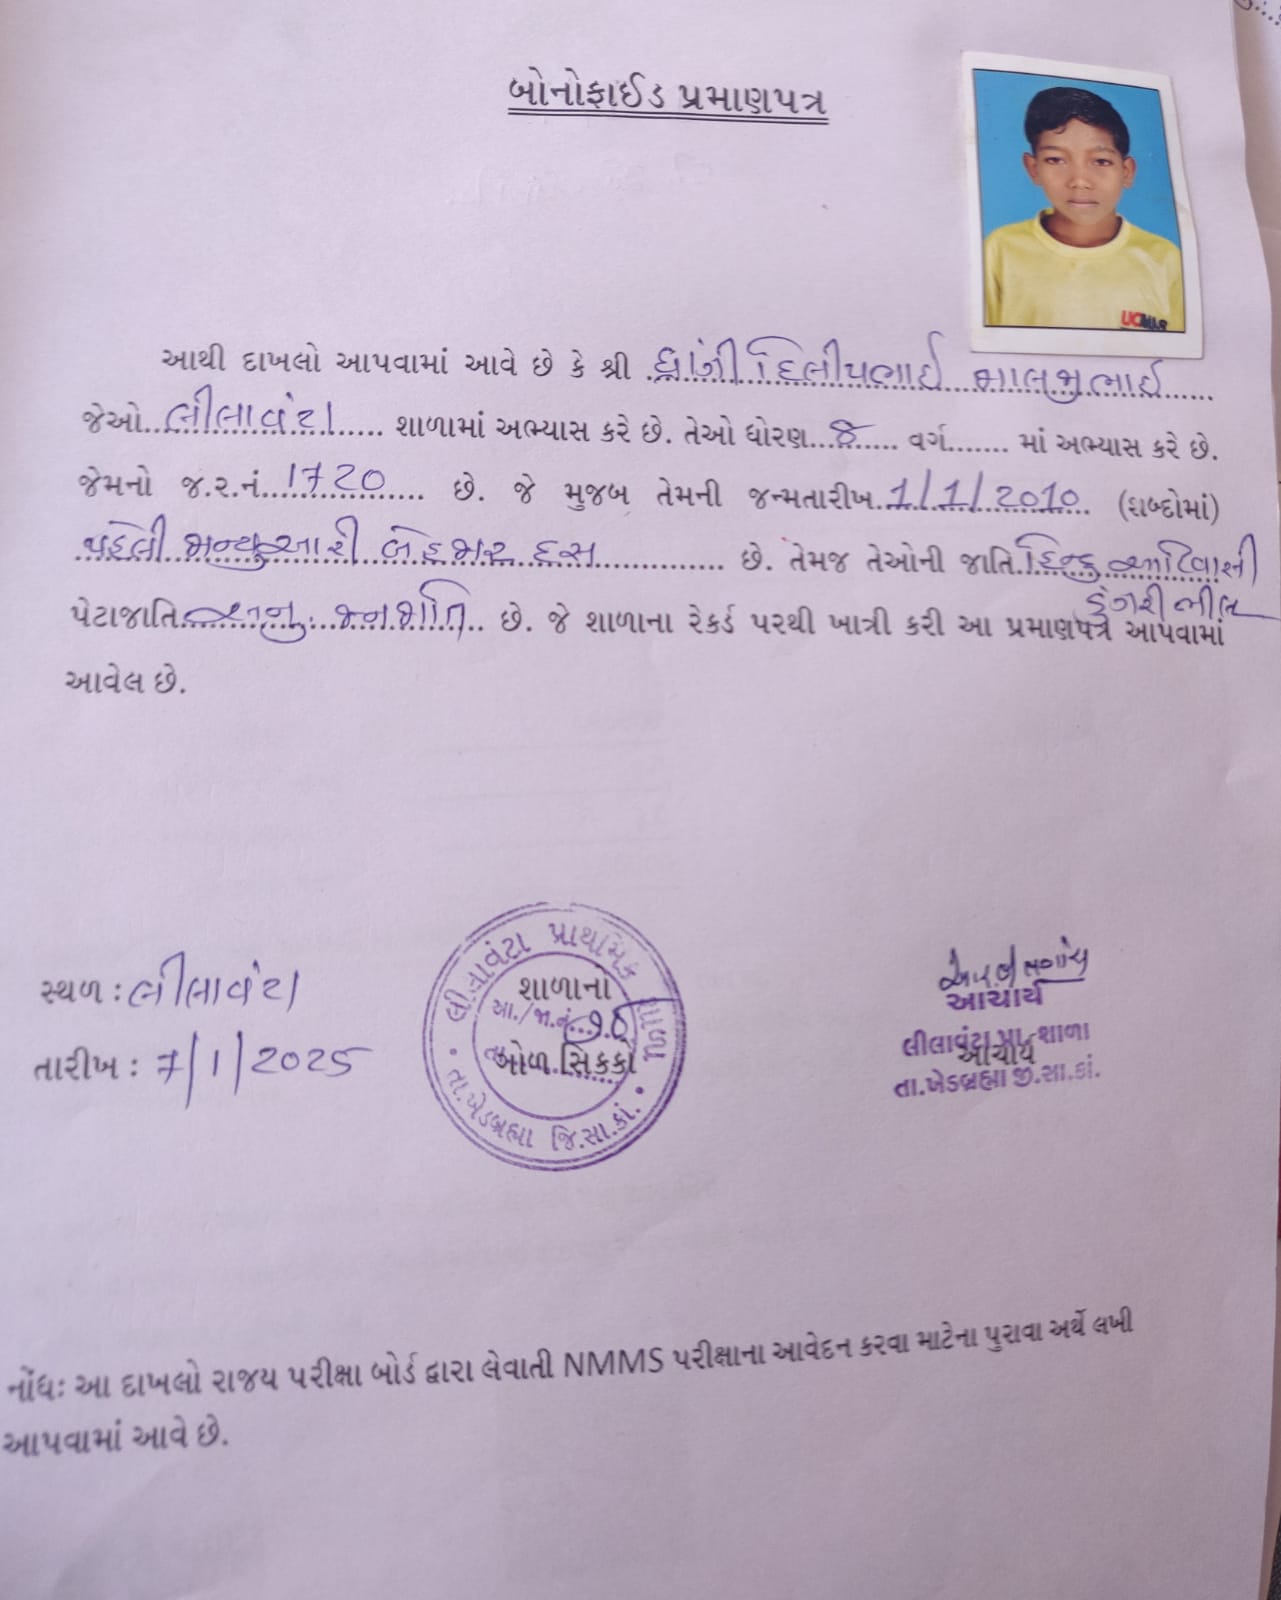 બોનોફાઈડ પ્રમાણપત્ર
UCMAS
આથી દાખલો આપવામાં આવે છે કે શ્રી ધ્રાંગી દિલીપભાઈ માલજીભાઈ
જેઓ લીલાવંટા શાળામાં અભ્યાસ કરે છે. તેઓ ધોરણ 8 વર્ગ....... માં અભ્યાસ કરે છે.
જેમનો જ.ર.નં. 1720 છે. જે મુજબ તેમની જન્મતારીખ 1/1/2010 (શબ્દોમાં)
પહેલી જાન્યુઆરી બે હજાર દસ છે. તેમજ તેઓની જાતિ હિન્દુ આદિવાસી
ડુંગરી ભીલ
પેટાજાતિ અનુ. જનજાતિ છે. જે શાળાના રેકર્ડ પરથી ખાત્રી કરી આ પ્રમાણપત્ર આપવામાં
આવેલ છે.
સ્થળ : લીલાવંટા
તારીખ : 7/1/2025
લીલાવંટા પ્રાથમિક શાળા
શાળાનો
આ./જા.નં.
ગોળ સિક્કો
તા.ખેડબ્રહ્મા જિ.સા.કાં.
આચાર્ય
લીલાવંટા પ્રા. શાળા
આચાર્ય
તા.ખેડબ્રહ્મા જી.સા.કાં.
નોંધઃ આ દાખલો રાજ્ય પરીક્ષા બોર્ડ દ્વારા લેવાતી NMMS પરીક્ષાના આવેદન કરવા માટેના પુરાવા અર્થે લખી
આપવામાં આવે છે.